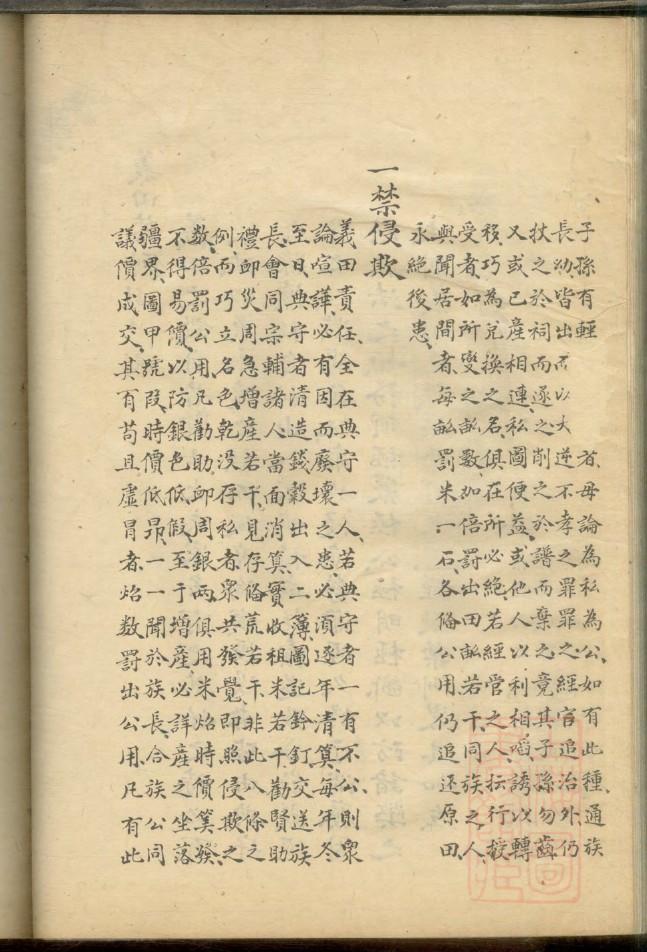 子孫有輕　　　者毋論為私為公如有此種通族
長幼皆出而以大逆不孝之罪罪之經官追治外仍
扶之於祠而逐之削之於譜而棄之竟其子孫勿齒
又或已產相連私圖便益或他人以利相啗誘以轉
移巧為兌換之名俱在所必絕若經營之人抎行授
受者如所變之畝數加倍罰出田畝若干同族之人
與聞居間者每畝罰米一石各俻公用仍追还原田
永絕後患
一禁侵欺
義田責任全在典守一人若典守者一有不公則眾
論喧譁必有因而廢壞之患必須逐年清算每年冬
至日典守者清造錢穀出入二簿圖記鈐釘交送族
長會同宗輔諸人當面消算實收租米若干勸賢助
禮卹災周急增產若干見存俻荒若干非此八條之
例而巧立名色乾没存私者眾共發覺即照侵欺之
數倍罰公用凡勸助卹周銀兩俱用米炤時價筭發
不得易價以防銀色低假至于增產必詳產之坐落
疆界圖甲號段時價低昂一一聞於族長合族公同
議價成交其有苟且虛冒者炤數罰出公用凡有此